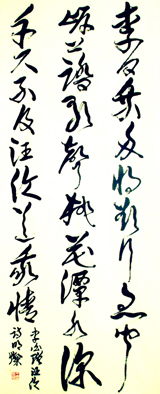 李白乘舟將欲行忽聞
岸上踏歌聲桃花潭水深
千尺不及汪倫送我情
李白贈汪倫